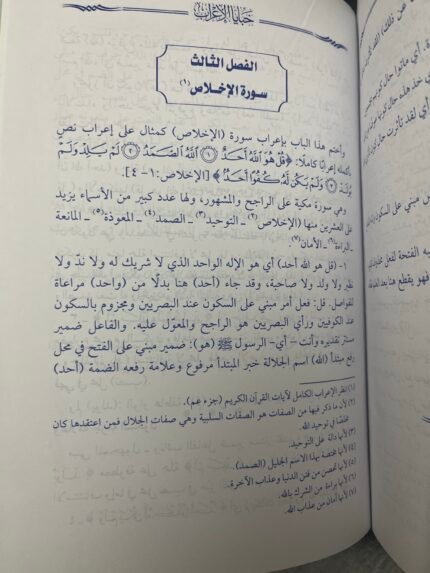 خبايا الإعراب
الفصل الثالث
سورة الإخلاص(١)
وأختم هذا الباب بإعراب سورة (الإخلاص) كمثال على إعراب نص
بأكمله إعرابًا كاملًا: ﴿قُلْ هُوَ اللَّهُ أَحَدٌ ١ اللَّهُ الصَّمَدُ ٢ لَمْ يَلِدْ وَلَمْ
يُولَدْ ٣ وَلَمْ يَكُن لَّهُ كُفُوًا أَحَدٌ﴾ [الإخلاص: ١-٤].
وهي سورة مكية على الراجح والمشهور، ولها عدد كبير من الأسماء يزيد
على العشرين منها (الإخلاص(٢) - التوحيد(٣) - الصمد(٤) - المعوذة(٥) - المانعة
- البراءة(٦) - الأمان(٧).
١- (قل هو الله أحد) أي هو الإله الواحد الذي لا شريك له ولا ندّ ولا
نظير ولا ولد ولا صاحبة، وقد جاء (أحد) هنا بدلًا من (واحد) مراعاة
للفواصل. قل: فعل أمر مبني على السكون عند البصريين ومجزوم بالسكون
عند الكوفيين ورأي البصريين هو الراجح والمعوّل عليه. والفاعل ضمير
مستتر تقديره وأنت - أي- الرسول ﷺ (هو): ضمير مبني على الفتح في محل
رفع مبتدأ (الله) اسم الجلالة خبر المبتدأ مرفوع وعلامة رفعه الضمة (أحد)
(١) انظر الإعراب الكامل لآيات القرآن الكريم (جزء عم).
(٢) لأن ما ذكر فيها من الصفات هو الصفات السلبية وهي صفات الجلال فمن اعتقدها كان
مخلصًا في توحيد الله.
(٣) لأنها دالة على التوحيد.
(٤) لأنها مختصة بهذا الاسم الجليل (الصمد).
(٥) لأنها تحصن من فتن الدنيا وعذاب الآخرة.
(٦) لأنها براءة من الشرك بالله.
(٧) لأنها أمان من عذاب الله.